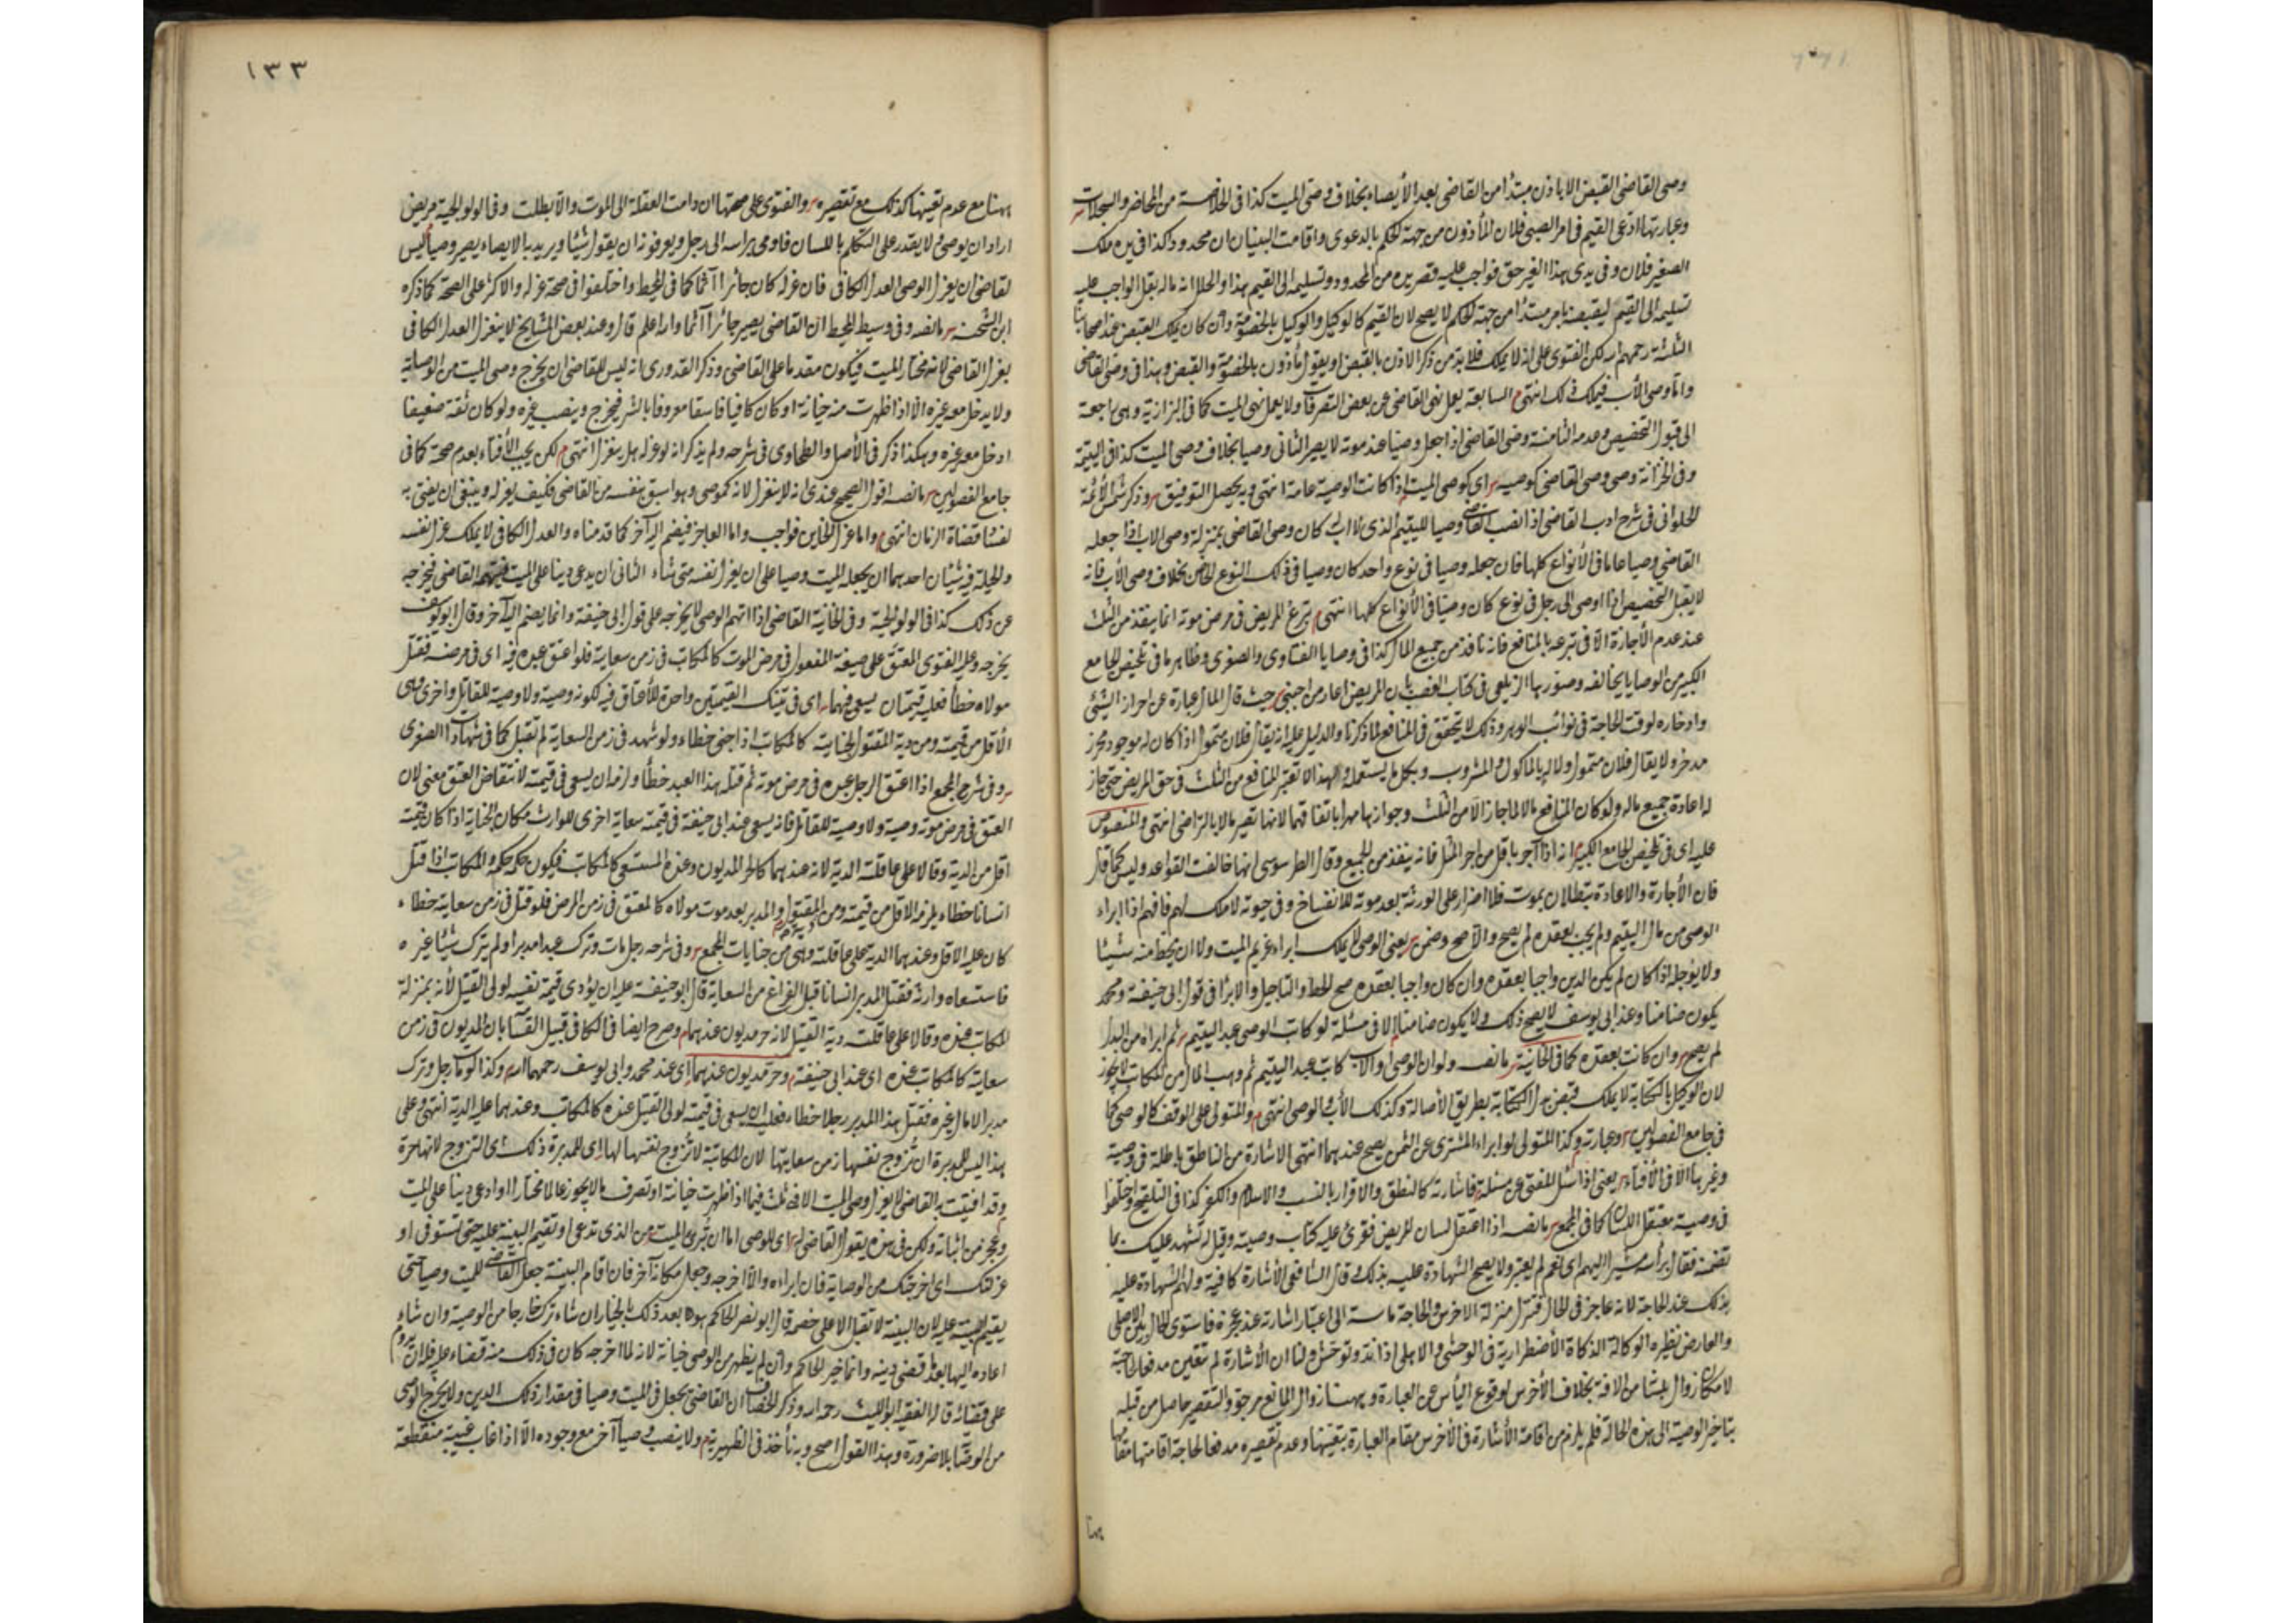 وصى القاضى القبض الا باذن مبتدأ من القاضى بعد الأيصاء بخلاف وصى الميت كذا فى الخلاصة من المحاضر والسجلات
وعبارتها ادعى القيم فى امر الصبى فلان المأذون من جهة الحكم بالدعوى واقامت البينة ان محدود كذا فى يده ملك
الصغير فلان وفى يدى هذا الغير حق فواجب عليه قصر يده من المحدود وتسليمه الى القيم هذا والخلل انه ماله بقل الواجب عليه
تسليمه الى القيم ليقبضه بامر مبتدأ من جهة الحكم لا يصح لان القيم كالوكيل والوكيل بالخصومة وان كان يملك القبض عند اصحابنا
الثلثة رحمهم الله لكن الفتوى على انه لا يملك فلا بد من ذكر الاذن بالقبض او يقول مأذون بالخصومة والقبض وهذا فى وصى القاضى
واما وصى الأب فيملك ذلك انتهى السابعة يعمل نهى القاضى عن بعض التصرفات ولا يعمل نهى الميت كما فى البزازية وهى راجعة
الى قبول التخصيص وعدمه الثامنة وصى القاضى اذا جعل وصيا عند موته لا يصير الثانى وصيا بخلاف وصى الميت كذا فى اليتيمة
وفى الخزانة وصى وصى القاضى كوصيه اى كوصى الميت اذا كانت الوصية عامة انتهى وبه يحصل التوفيق وذكر شمس الأئمة
الحلوانى فى شرح ادب القاضى اذا نصب القاضى وصيا لليتيم الذى لا اب له كان وصى القاضى بمنزلة وصى الاب اذا جعله
القاضى وصيا عاما فى الأنواع كلها فان جعله وصيا فى نوع واحد كان وصيا فى ذلك النوع الخاص بخلاف وصى الأب فانه
لا يقبل التخصيص اذا اوصى الى رجل فى نوع كان وصيا فى الأنواع كلها انتهى تبرع المريض فى مرض موته انما ينفذ من الثلث
عند عدم الأجازة الا فى تبرعه بالمنافع فانه نافذ من جميع المال كذا فى وصايا الفتاوى والصغرى وظاهر ما فى تلخيص الجامع
الكبير من الوصايا يخالفه وصورها الزيلعى فى كتاب الغصب بأن المريض اعار من اجنبى حيث قال المال عبارة عن احراز الشئ
وادخاره لوقت الحاجة فى نوائب الدهر وذلك لا يتحقق فى المنافع لما ذكرنا والدليل عليه انه يقال فلان متمول اذا كان له موجود محرز
مدخر ولا يقال فلان متمول ولا له بالمأكول والمشروب وبكل ما يستعمله ولهذا لا تعتبر المنافع من الثلث فى حق المريض حتى جاز
له اعادة جميع ماله ولو كان المنافع مالا لما جاز الا من الثلث وجوازها مهرا باتفاقهما لانها تصير مالا بالتراضى انتهى والمنصوص
عليه اى فى تلخيص الجامع الكبير انه اذا آجر باقل من اجر المثل فانه ينفذ من الجميع وقال الطرسوسى انها خالفت القواعد وليس كما قال
فان الأجارة والاعارة يبطلان بموت فلا اضرار على الورثة بعد موته للانفساخ وفى حيوته لا ملك لهم فافهم اذا ابراء
الوصى من مال اليتيم ولم يجب بعقده لم يصح والاصح وضمن يعنى الوصى لا يملك ابراء غريم الميت ولا ان يحط منه شيئا
ولا يؤجله اذا كان لم يكن الدين واجبا بعقده وان كان واجبا بعقده صح الحط والتاجيل والابرا فى قول ابى حنيفة ومحمد
يكون ضامنا وعند ابى يوسف لا يصح ذلك ولا يكون ضامنا الا فى مسئلة لو كاتب الوصى عبد اليتيم ثم ابراه من البدل
لم يصح وان كانت بعقده كما فى الخانية ما نصه ولو ان الوصى او الاب كاتب عبد اليتيم ثم وهب المال من المكاتب لا يجوز
لان الوكيل بالكتابة لا يملك قبض بدل الكتابة بطريق الأصالة وكذلك الأب والوصى انتهى والمتولى على الوقف كالوصى كما
فى جامع الفصولين وعبارته وكذا المتولى لو ابراء المشترى عن الثمن يصح عندهما انتهى الاشارة من الناطق باطلة فى وصية
وغيرها الا فى الأفتاء يعنى اذا سئل المفتى عن مسئلة فاشارته كالنطق والاقرار بالنسب والاسلام والكفر كذا فى التلقيح واختلفوا
فى وصية معتقل اللسان كما فى المجمع ما نصه اذا اعتقل لسان المريض فقرئ عليه كتاب وصيته وقيل له نشهد عليك بما
تضمنه فقال برأسه مشيرا اليهم اى نعم لم يعتبر ولا يصح الشهادة عليه بذلك وقال الشافعى الأشارة كافية ولهم الشهادة عليه
بذلك عند الحاجة لانه عاجز فى الحال فتنزل منزلة الاخرس والحاجة ماسة الى اعتبار اشارته عند عجزه فاستوى الحال بين الاصلى
والعارض نظيره الوكالة الذكاة الأضطرارية فى الوحشى والاهلى اذا ند وتوحش ولنا ان الأشارة لم تتعين مدفعا للحاجة
لامكان زوال ما بنشأ من الافة بخلاف الأخرس لوقوع اليأس عن العبارة وههنا زوال المانع مرجو والتقصير حاصل من قبله
بتاخير الوصية الى هذه الحالة فلم يلزم من اقامة الأشارة فى الأخرس مقام العبارة بتعينها وعدم تقصيره مدفعا لحاجة اقامتها مقامها
هنا
١٣٣
ههنا مع عدم تعينها كذلك مع تقصيره والفتوى على صحتها ان دامت العقلة الى الموت والا بطلت وفى الولوالجية مريض
اراد ان يوصى لا يقدر على التكلم باللسان فاومى براسه الى رجل ويعرفونه ان يقول شيئا ويريد به الايصاء يصير وصيا ليس
لقاضى ان يعزل الوصى العدل الكافى فان عزله كان جائرا آثما كما فى المحيط واختلفوا فى صحة عزله والاكثر على الصحة كما ذكره
ابن الشحنة ما نصه وفى وسيط المحيط ان القاضى يصير جائرا آثما وارا اعلم قال وعند بعض المشايخ لا ينعزل العدل الكافى
بعزل القاضى لانه مختار الميت فيكون مقدما على القاضى وذكر القدورى انه ليس للقاضى ان يخرج وصى الميت من الوصاية
ولا يدخل معه غيره الا اذا ظهرت منه خيانة او كان كافيا فاسقا معروفا بالشر فيخرج وينصب غيره ولو كان ثقة ضعيفا
ادخل معه غيره وهكذا ذكر فى الأصل والطحاوى فى شرحه ولم يذكر انه لو عزله هل ينعزل انتهى لكن يجب الأفتاء بعدم صحة كما فى
جامع الفصولين ما نصه اقول الصحيح عندى انه لا ينعزل لانه كموصى وهو اسبق بنفسه من القاضى فكيف يعزله وينبغى ان يفتى به
لفساد قضاة الزمان انتهى واما عزل الخاين فواجب واما العاجز فيضم اليه آخر كما قدمناه والعدل الكافى لا يملك عزل نفسه
والحيلة فيه شيئان احدهما ان يجعله الميت وصيا على ان يعزل نفسه متى شاء الثانى ان يدعى دينا على الميت فيتهمه القاضى فيخرجه
عن ذلك كذا فى الولوالجية وفى الخانية القاضى اذا اتهم الوصى لا يخرجه على قول ابى حنيفة وانما يضم اليه آخر وقال ابو يوسف
يخرجه وعليه الفتوى المعتق على صيغة المفعول فى مرض الموت كالمكاتب فى زمن سعايته فلو اعتق عبده فيه اى فى مرضه فقتل
مولاه خطأ فعليه قيمتان يسعى فيهما اى فى تينك القيمتين واحدة للأعتاق فيه لكونه وصية ولا وصية للقاتل واخرى وهى
الأقل من قيمته ومن دية المقتول لجنايته كالمكاتب اذا جنى خطاء ولو شهد فى زمن السعاية لم تقبل كما فى شهادات الصغرى
وفى شرح المجمع اذا اعتق الرجل عبده فى مرض موته ثم قتله هذا العبد خطأ ولزمه ان يسعى فى قيمته لانتقاض العتق معنى لان
العتق فى مرض موته وصية ولا وصية للقاتل فانه يسعى عند ابى حنيفة فى قيمته سعاية اخرى للوارث مكان الجناية اذا كان قيمته
اقل من الدية وقالا على عاقلته الدية لانه عندهما كالحر المديون وعنده المستسعى كالمكاتب فيكون حكمه حكم المكاتب اذا قتل
انسانا خطاء يلزمه الاقل من قيمته ومن دية المقتول والمدبر بعد موت مولاه كالمعتق فى زمن المرض فلو قتل فى زمن سعايته خطاء
كان عليه الاقل وعندهما الدية على عاقلته وهى من جنايات المجمع وفى شرحه رجل مات وترك عبدا مدبرا ولم يترك شيئا غيره
فاستسعاه وارثه فقتل المدبر انسانا قبل الفراغ من السعاية قال ابو حنيفة عليه ان يؤدى قيمة نفسه لولى القتيل لأنه بمنزلة
المكاتب عنده وقالا على عاقلته دية القتيل لانه حر مديون عندهما وصرح ايضا فى الكافى قبيل القسامة بان المديون فى زمن
سعايته كالمكاتب عنده اى عند ابى حنيفة وحر مديون عندهما اى عند محمد وابى يوسف رحمهما الله وكذا لو مات رجل وترك
مدبرا لا مال غيره فقتل هذا المدبر رجلا خطاء فعليه ان يسعى فى قيمته لولى القتيل عنده كالمكاتب وعندهما عليه الدية انتهى وعلى
هذا ليس للمدبرة ان تزوج نفسها زمن سعايتها لان المكاتبة لا تزوج نفسها لها اى للمدبرة ذلك اى التزوج لانها حرة
وقد افتيت به القاضى لا يعزل وصى الميت الا فى ثلث فيما اذا ظهرت خيانته او تصرف مالا يجوز عالما مختارا او ادعى دينا على الميت
وعجز عن اثباته ولكن فى هذه يقول القاضى له اى للوصى اما ان تبرئ الميت من الذى تدعى او تقيم البينة عليه حتى تستوفى او
عزلتك اى اخرجتك من الوصاية فان ابراءه والا اخرجه وجعل مكانه آخر فان اقام البينة جعل القاضى للميت وصيا حتى
يقيم البينة عليه لان البينة لا تقبل الا على خصم قال ابو نصر الحاكم هو بعد ذلك بالخيار ان شاء ترك خارجا من الوصية وان شاء
اعاده اليها بعد ما قضى دينه وانما خير الحاكم وان لم يظهر من الوصى خيانة لانه لما اخرجه كان فى ذلك منه قضاء عليه فلا يزوم
على قضائه قال الفقيه ابو الليث رحمه الله وذكر الخصاف ان القاضى يجعل فى الميت وصيا فى مقدار ذلك الدين ولا يخرج الوصى
من الوصاية بلا ضرورة وهذا القول اصح وبه نأخذ فى الظهيرية ولا ينصب وصيا آخر مع وجوده الا اذا غاب غيبة منقطعة